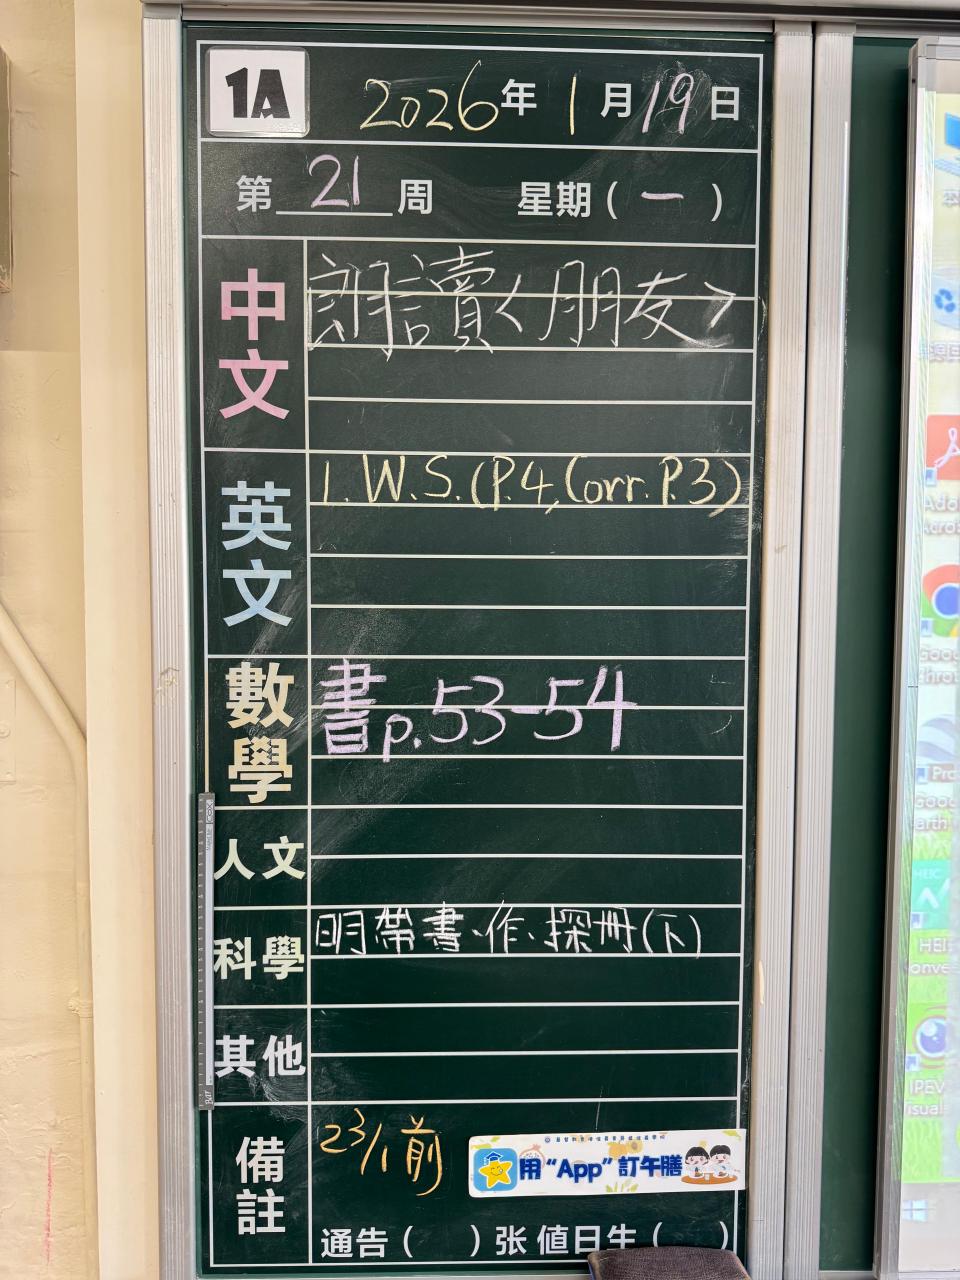 1A 2026年1月19日
第 21 周 星期(一)
中文 朗讀<朋友>
英文 1. W.S.(P.4, Corr. P.3)
數學 書p.53-54
人文
科學 明帶書、作、探冊(下)
其他
備註 23/1前
用“App”訂午膳
通告( )张 值日生( )
Goo
Chro
Pro
Goo
HEIC
HEI
onve
IPEV
isual